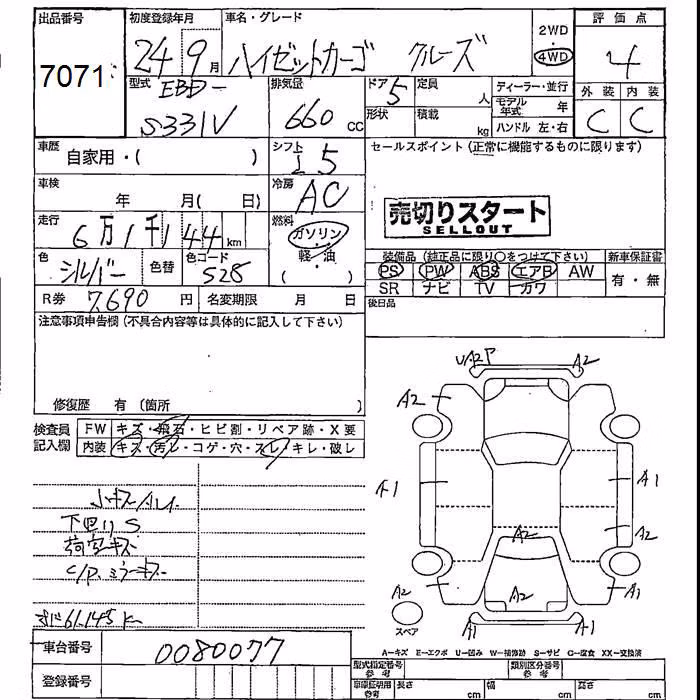 出品番号 初度登録年月 車名・グレード 2WD 評価点
7071 24 9月 ハイゼットカーゴ クルーズ 4WD 4
型式 EBD- 排気量 ドア 5 定員 人 ディーラー・並行 外装 内装
S331V 660 cc 形状 積載 kg モデル年式 年 C C
ハンドル 左・右
車歴 自家用・( ) シフト 5 セールスポイント(正常に機能するものに限ります)
車検 年 月( 日) 冷房 AC
売切りスタート
SELLOUT
走行 6万1千144km 燃料 ガソリン 軽・油 ( )
色 シルバー 色替 色コード S28 装備品(純正品に限り○をつけて下さい) 新車保証書
PS PW ABS エアB AW 有・無
SR ナビ TV カワ
R券 7,690 円 名変期限 月 日 後日品
注意事項申告欄(不具合内容等は具体的に記入して下さい)
修復歴 有(箇所 )
検査員記入欄 FW キズ・飛石・ヒビ割・リペア跡・X要
内装 キズ・汚レ・コゲ・穴・スレ・キレ・破レ
UA2P A2
A2
A1 A1
A2
A2
A2 A2 A1
A1 A1
スペア
小キズ
下回りS
荷室キズ
C/P. ミラーキズ
61,145
A-キズ E-エクボ U-凹み W-補修跡 S-サビ C-腐食 XX-交換済
車台番号 0080077 型式指定番号 参考 類別区分番号 参考
登録番号 車庫証明用 参考 長さ cm 幅 cm 高さ cm